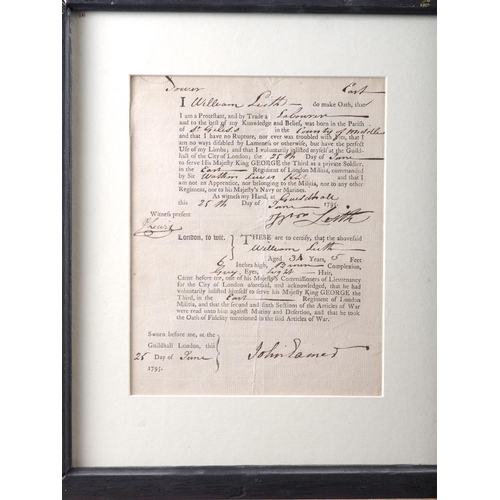 Tower East
I William Leith do make Oath, that
I am a Protestant, and by Trade a Labourer
and to the best of my Knowledge and Belief, was born in the Parish
of St Giles's in the County of Middlesex
and that I have no Rupture, nor ever was troubled with Fits, that I
am no ways disabled by Lameness or otherwise, but have the perfect
Use of my Limbs; and that I voluntarily inlisted myself at the Guild-
hall of the City of London; the 25th Day of June
to serve His Majesty King GEORGE the Third as a private Soldier,
in the East Regiment of London Militia, commanded
by Sir Watkin Lewes Knt and that I
am not an Apprentice, nor belonging to the Militia, nor to any other
Regiment, nor to his Majesty's Navy or Marines.
As witness my Hand, at Guildhall
this 25th Day of June 1795.
Witness present
Wm Leith
London, to wit. } THESE are to certify, that the abovesaid
William Leith
Aged 34 Years, 5 Feet
6 Inches high, Brown Complexion,
Grey Eyes, light Hair,
Came before me, one of his Majesty's Commissioners of Lieutenancy
for the City of London aforesaid, and acknowledged, that he had
voluntarily inlisted himself to serve his Majesty King GEORGE the
Third, in the East Regiment of London
Militia, and that the second and sixth Sections of the Articles of War
were read unto him against Mutiny and Desertion, and that he took
the Oath of Fidelity mentioned in the said Articles of War.
Sworn before me, at the
Guildhall London, this
25 Day of June
1795.
John Eamer